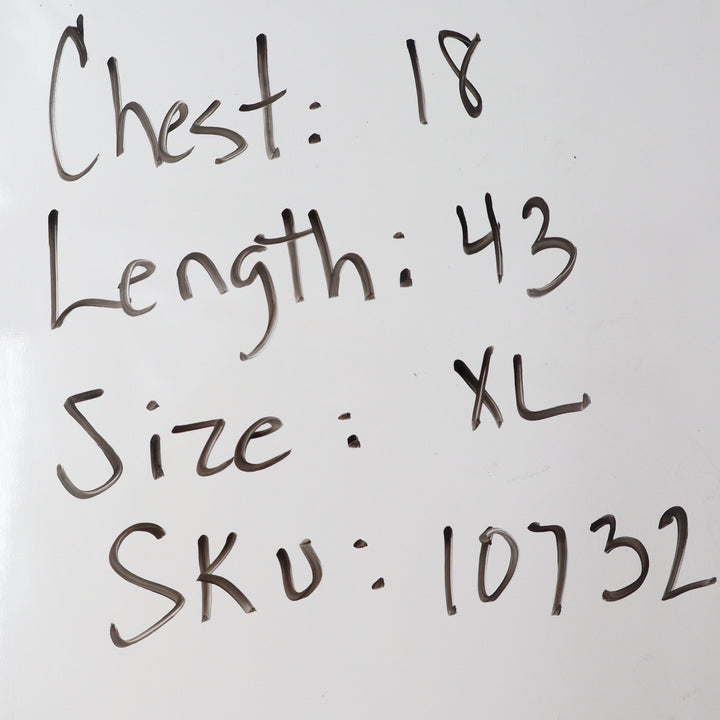 Chest: 18
Length: 43
Size: XL
SKU: 10732